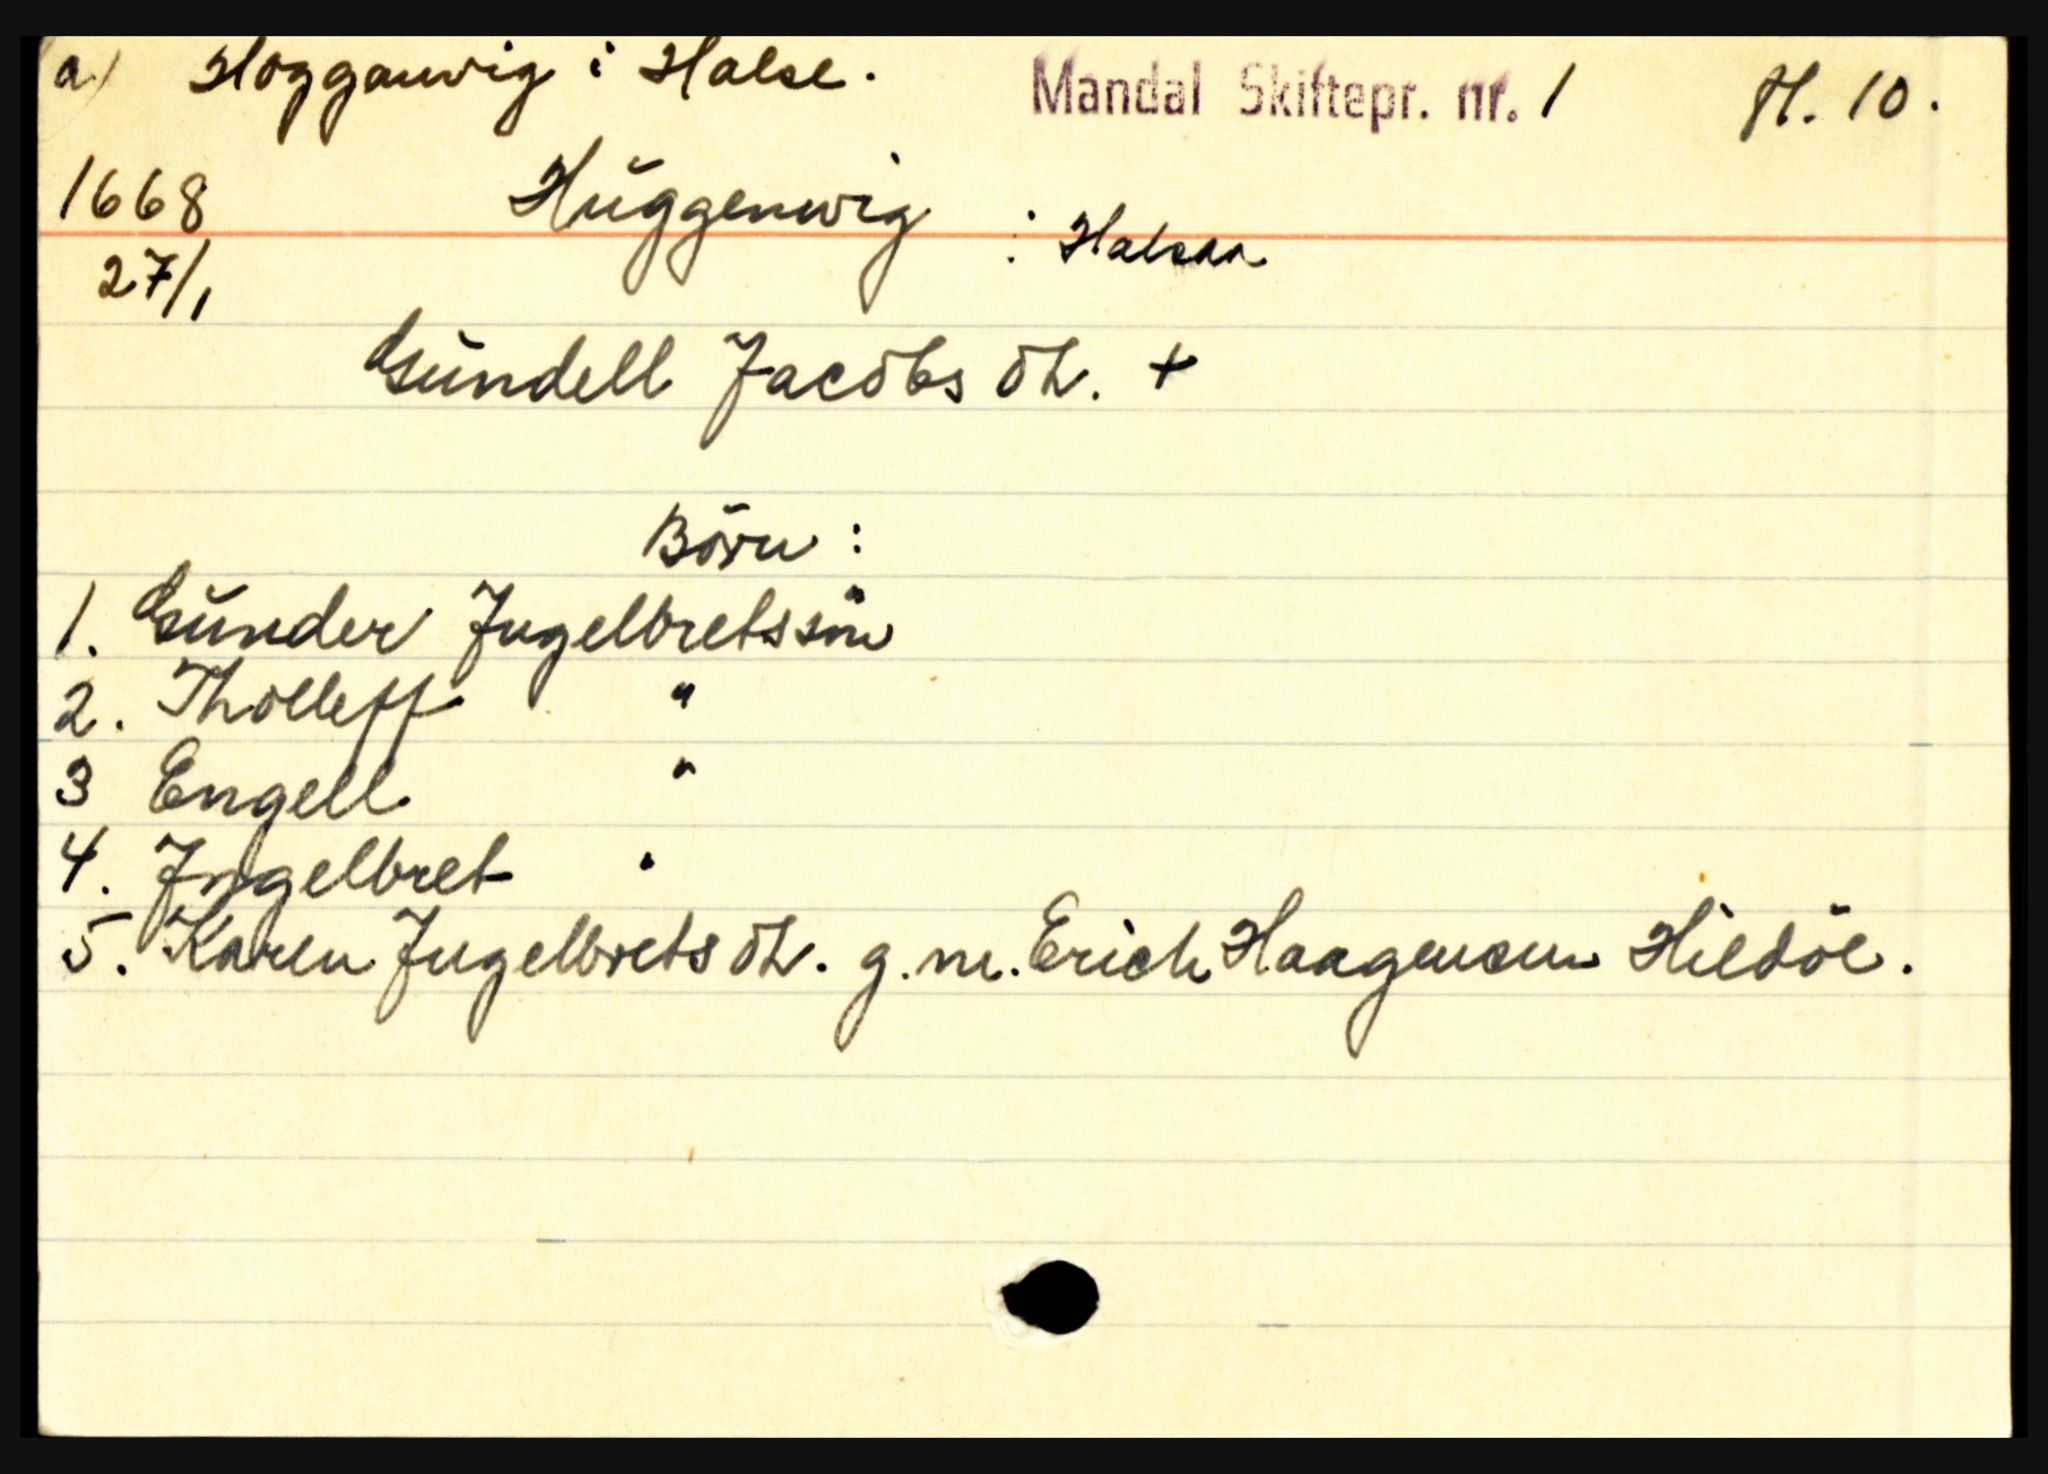 a) Hogganvig i Halse. Mandal Skiftepr. nr. 1 fl. 10.
1668 Hŭggenwig i Halsaa
27/1
Gŭndell Jacobs dt. +
Börn:
1. Gŭnder Jngelbretssön
2. Tholleff "
3 Engell "
4. Jngelbret "
5. Karen Jngelbrets dt. g. m. Erich Haagensen